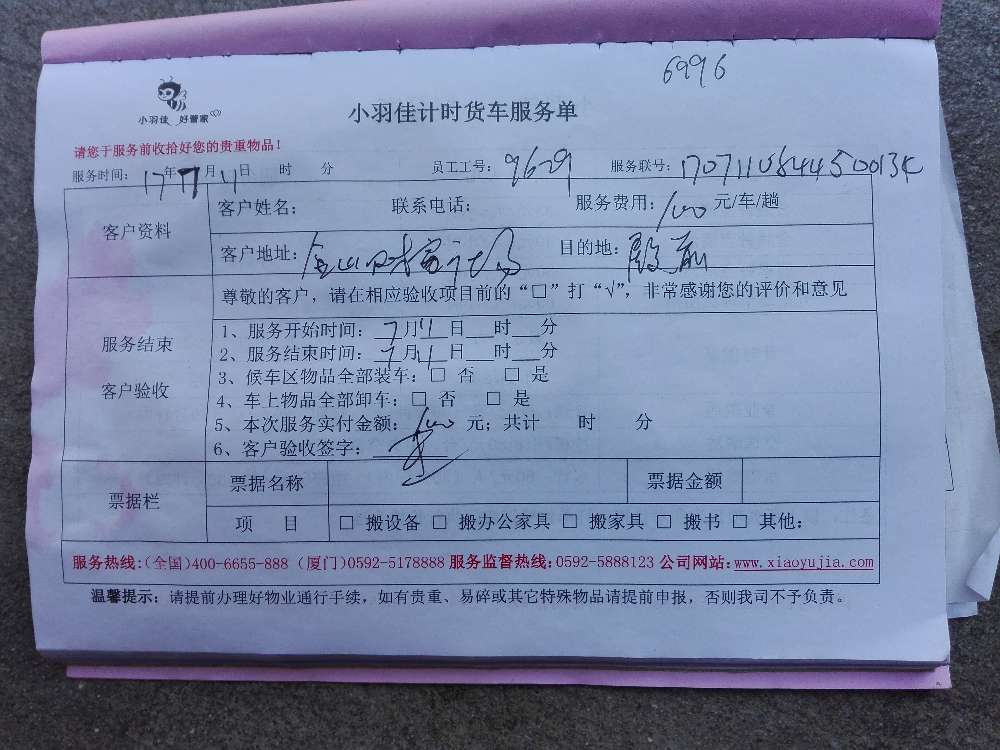 6996
小羽佳 好管家
小羽佳计时货车服务单
请您于服务前收拾好您的贵重物品！
服务时间：17年7月11日 时 分 员工工号：9629 服务联号：
客户资料
客户姓名： 联系电话： 服务费用：100元/车/趟
客户地址： 目的地：殿前
服务结束
客户验收
尊敬的客户，请在相应验收项目前的“□”打“√”，非常感谢您的评价和意见
1、服务开始时间：7月11日 时 分
2、服务结束时间：7月11日 时 分
3、候车区物品全部装车：□ 否 □ 是
4、车上物品全部卸车：□ 否 □ 是
5、本次服务实付金额：100元；共计 时 分
6、客户验收签字：
票据栏
票据名称 票据金额
项 目 □ 搬设备 □ 搬办公家具 □ 搬家具 □ 搬书 □ 其他：
服务热线：(全国)400-6655-888 (厦门)0592-5178888 服务监督热线：0592-5888123 公司网站：www.xiaoyujia.com
温馨提示：请提前办理好物业通行手续，如有贵重、易碎或其它特殊物品请提前申报，否则我司不予负责。